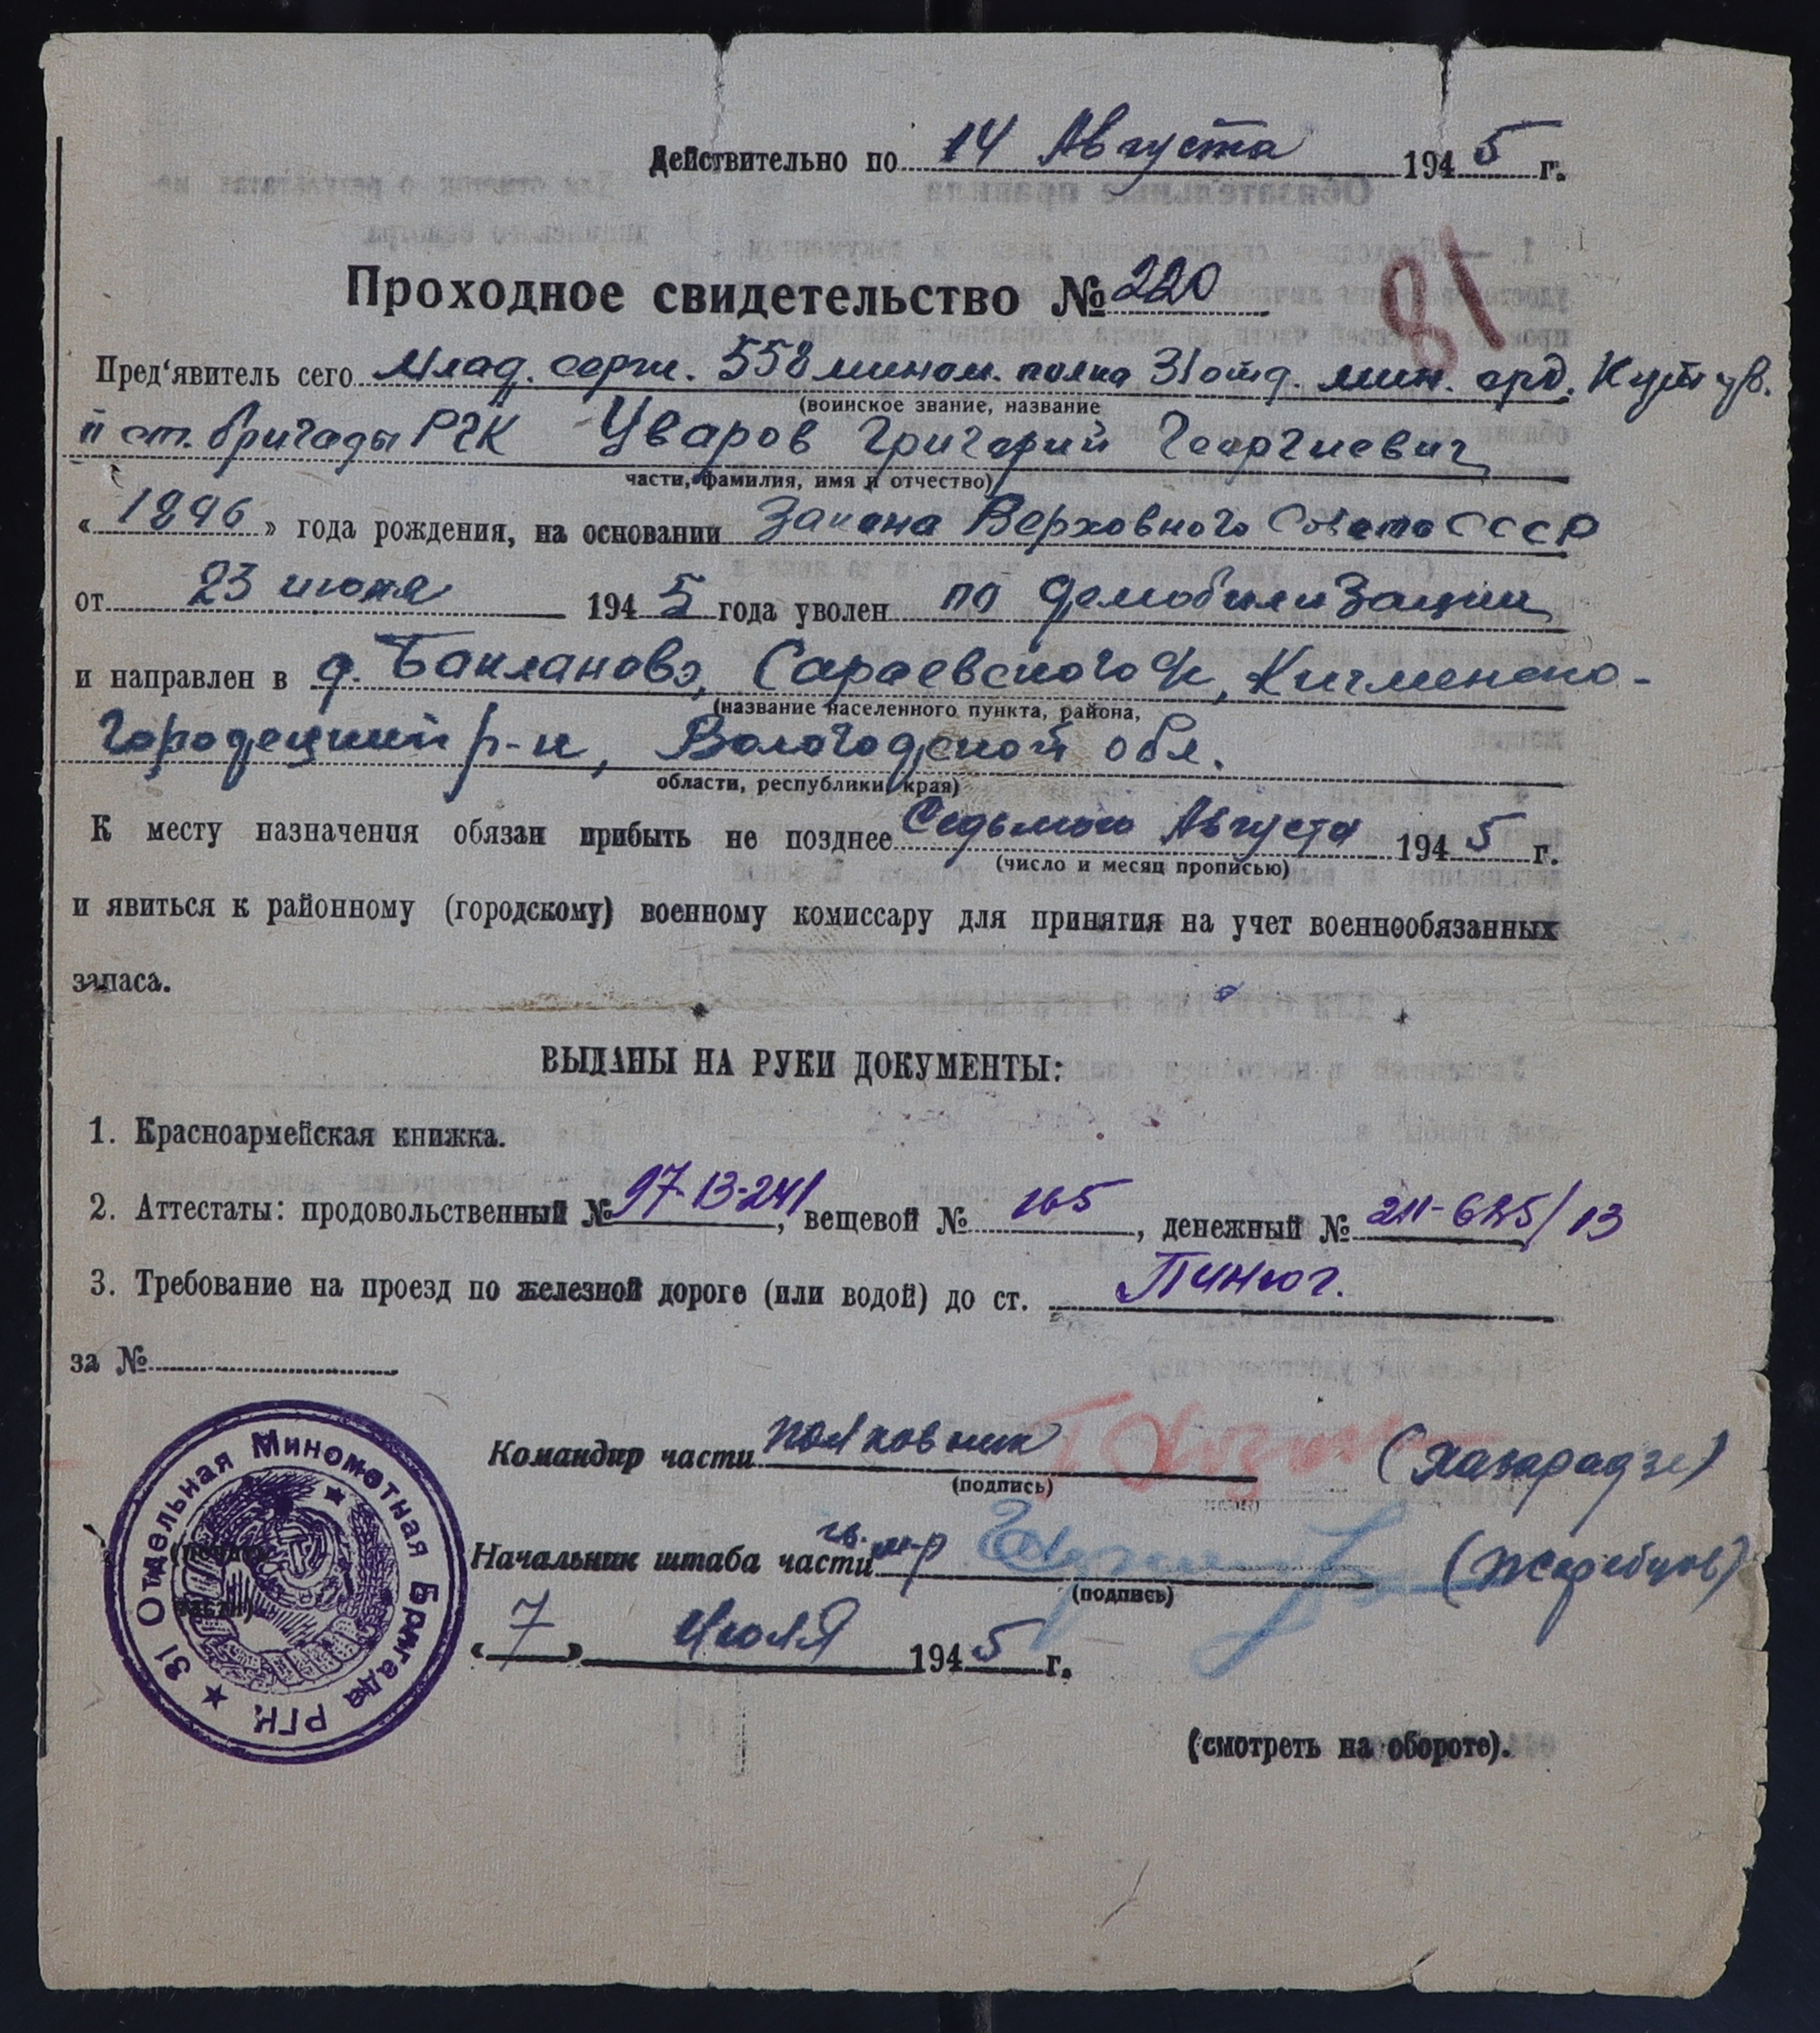 Действительно по 14 Августа 1945 г.
Проходное свидетельство № 220
81
Пред‘явитель сего Млад. серж. 558 мином. полка 31 отд. мин. орд. Кутув.
(воинское звание, название
II ст. бригады РГК Уваров Григорий Георгиевич
части, фамилия, имя и отчество)
«1896» года рождения, на основании Закона Верховного Совета СССР
от 23 июня 1945 года уволен по демобилизации
и направлен в д. Бакланово, Сараевского с/с, Кичменско-
(название населенного пункта, района,
Городецкий р-н, Вологодской обл.
области, республики, края)
К месту назначения обязан прибыть не позднее Седьмого Августа 1945 г.
(число и месяц прописью)
и явиться к районному (городскому) военному комиссару для принятия на учет военнообязанных
запаса.
ВЫДАНЫ НА РУКИ ДОКУМЕНТЫ:
1. Красноармейская книжка.
2. Аттестаты: продовольственный № 97-13-241, вещевой № 165, денежный № 211-685/13
3. Требование на проезд по железной дороге (или водой) до ст. Пинюг.
за №
Командир части полковник (Хазарадзе)
(подпись)
Начальник штаба части гв. м-р (Жеребцов)
(подпись)
«7» Июля 1945 г.
31 Отдельная Минометная Бригада РГК
(смотреть на обороте).